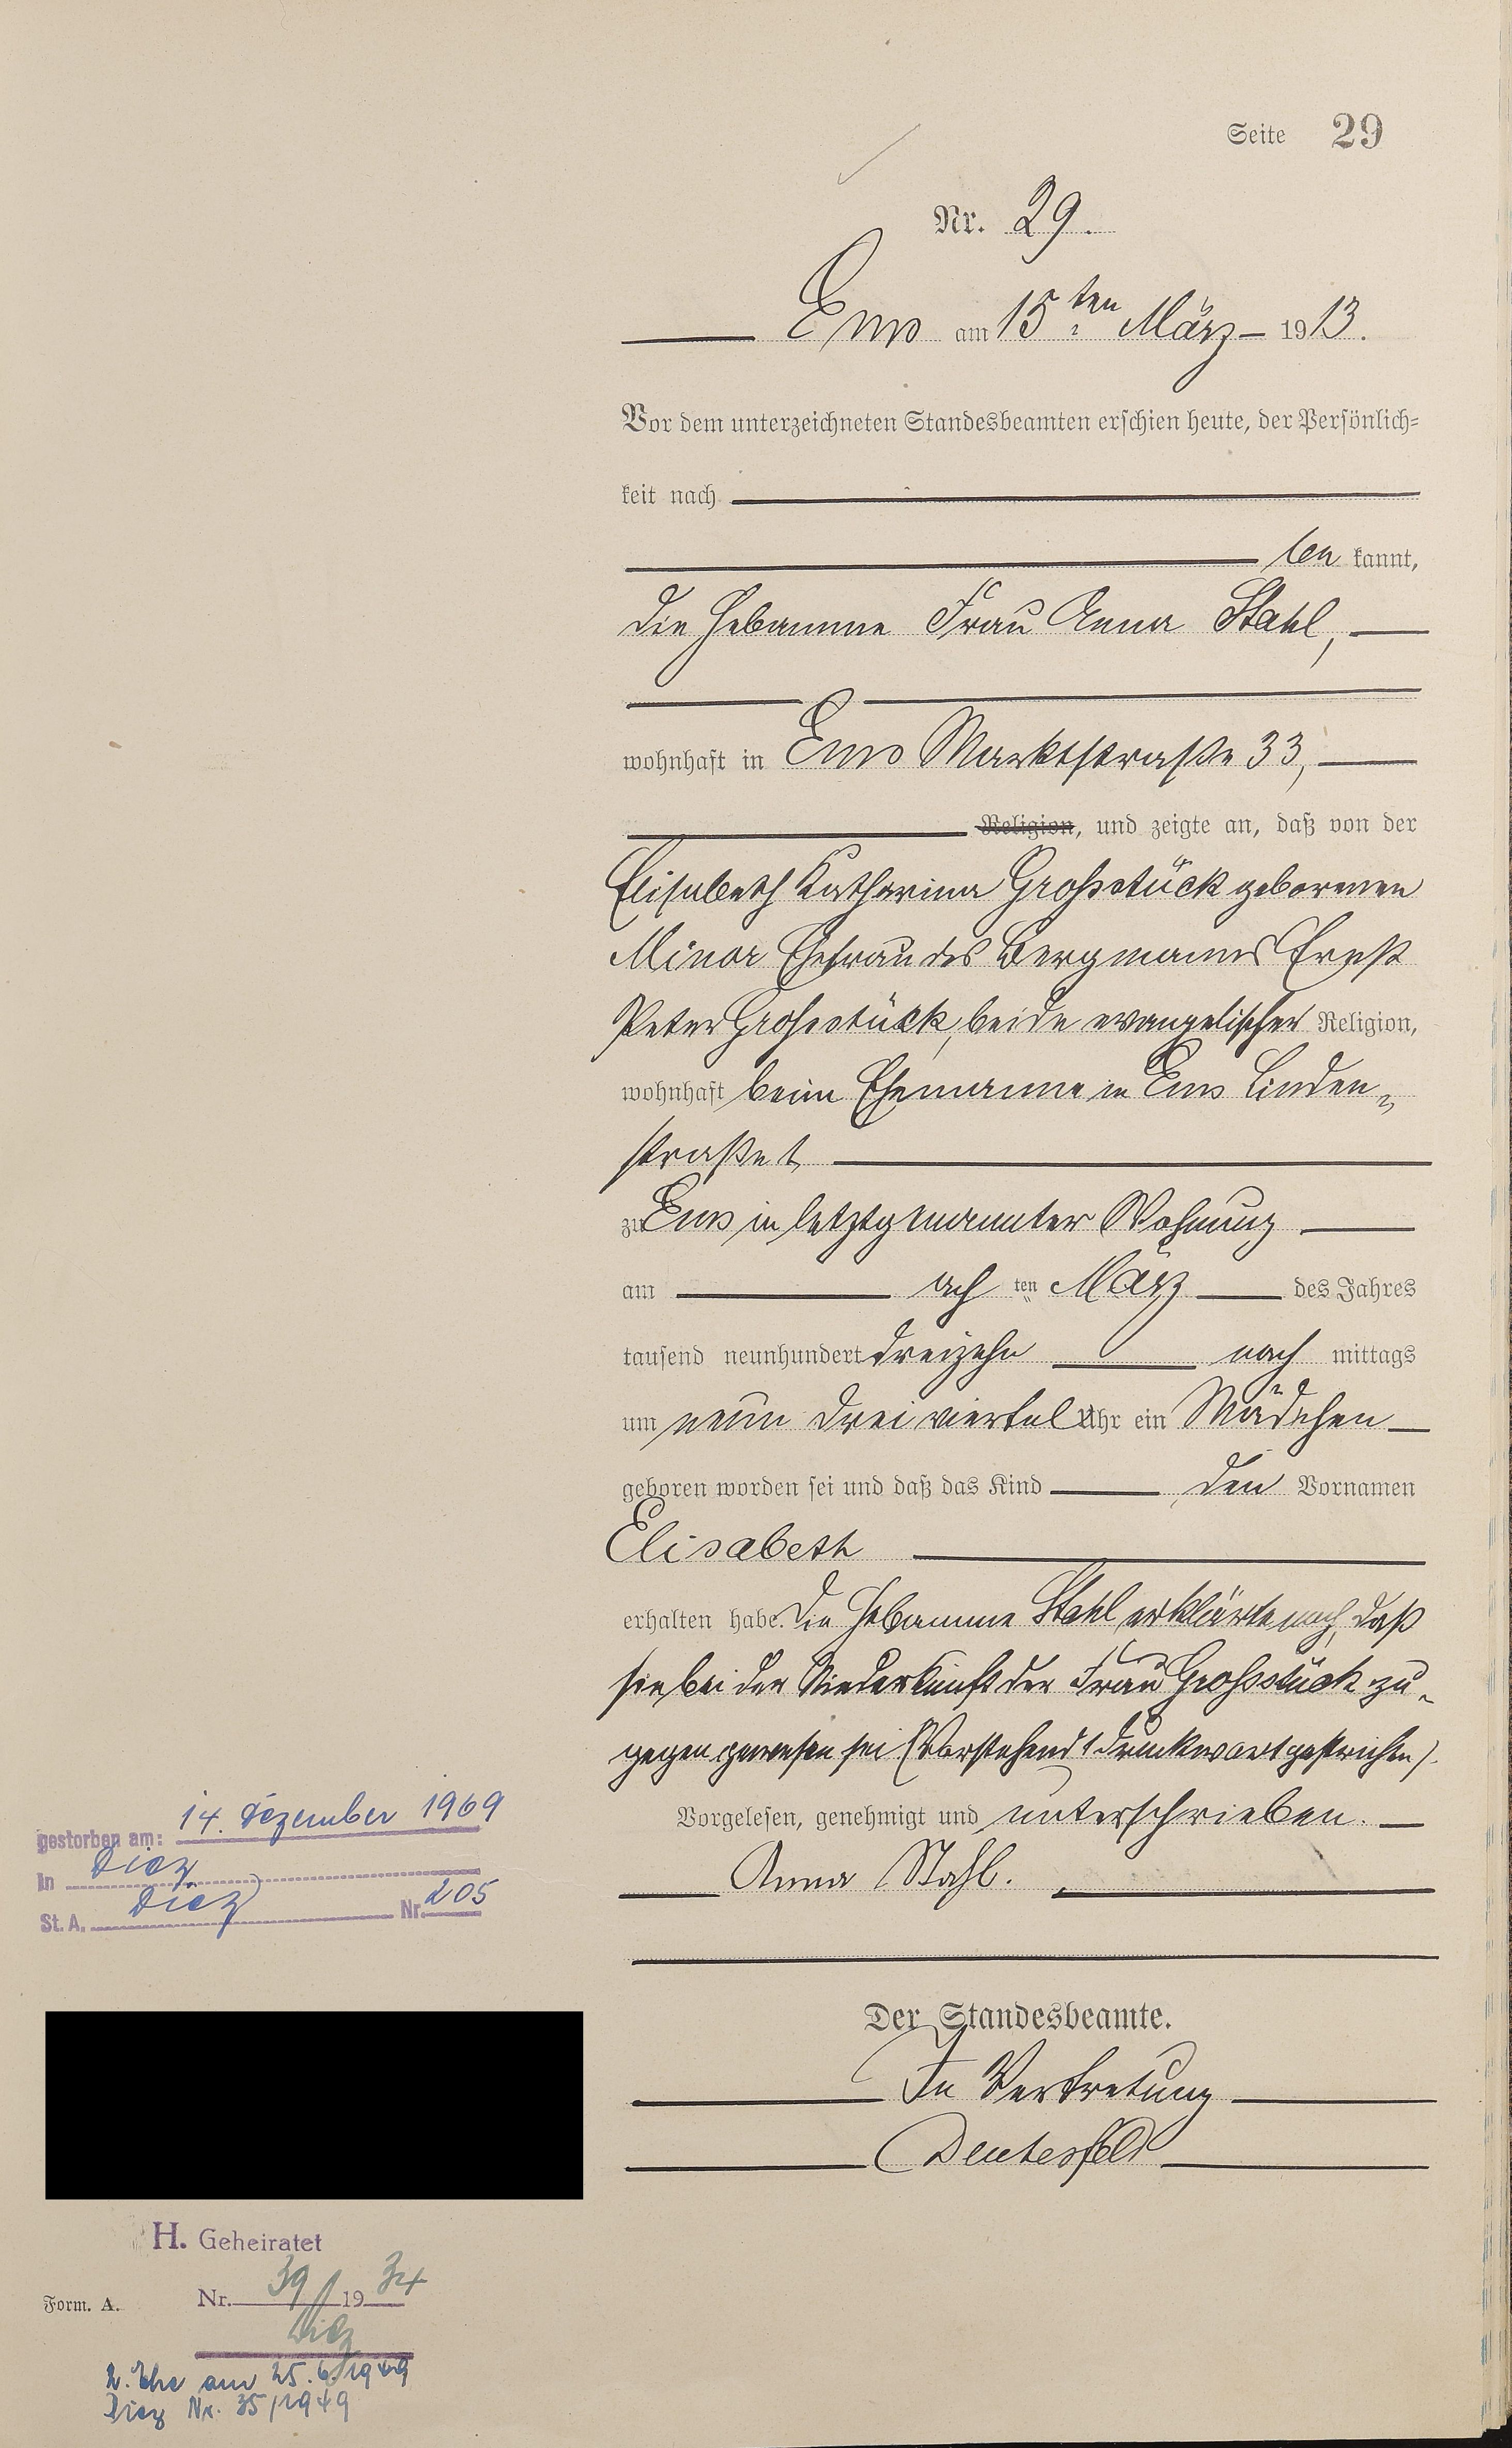 Seite 29
Nr. 29.
Ems am 15ten März 1913.
Vor dem unterzeichneten Standesbeamten erschien heute, der Persönlich-
keit nach
be kannt,
die Hebamme Frau Anna Stahl,
wohnhaft in Ems Marktstraße 33,
Religion, und zeigte an, daß von der
Elisabeth Katharina Großstück geborenen
Minor Ehefrau des Bergmanns Ernst
Peter Großstück, beide evangelischer Religion,
wohnhaft beim Ehemanne in Ems Linden-
straße 1,
zu Ems in letztgenannter Wohnung
am ach ten März des Jahres
tausend neunhundert dreizehn nach mittags
um neun drei viertel Uhr ein Mädchen
geboren worden sei und daß das Kind den Vornamen
Elisabeth
erhalten habe. Die Hebamme Stahl erklärte noch, daß
sie bei der Niederkunft der Frau Großstück zu-
gegen gewesen sei (Vorstehend 1 Druckwort gestrichen).
Vorgelesen, genehmigt und unterschrieben.
Anna Stahl.
Der Standesbeamte.
In Vertretung
gestorben am: 14. Dezember 1969
In Diez
St. A. Diez Nr. 205
H. Geheiratet
Nr. 39/1934
Diez
Form. A.
2. Ehe am 25.6.1949
Diez Nr. 35/1949